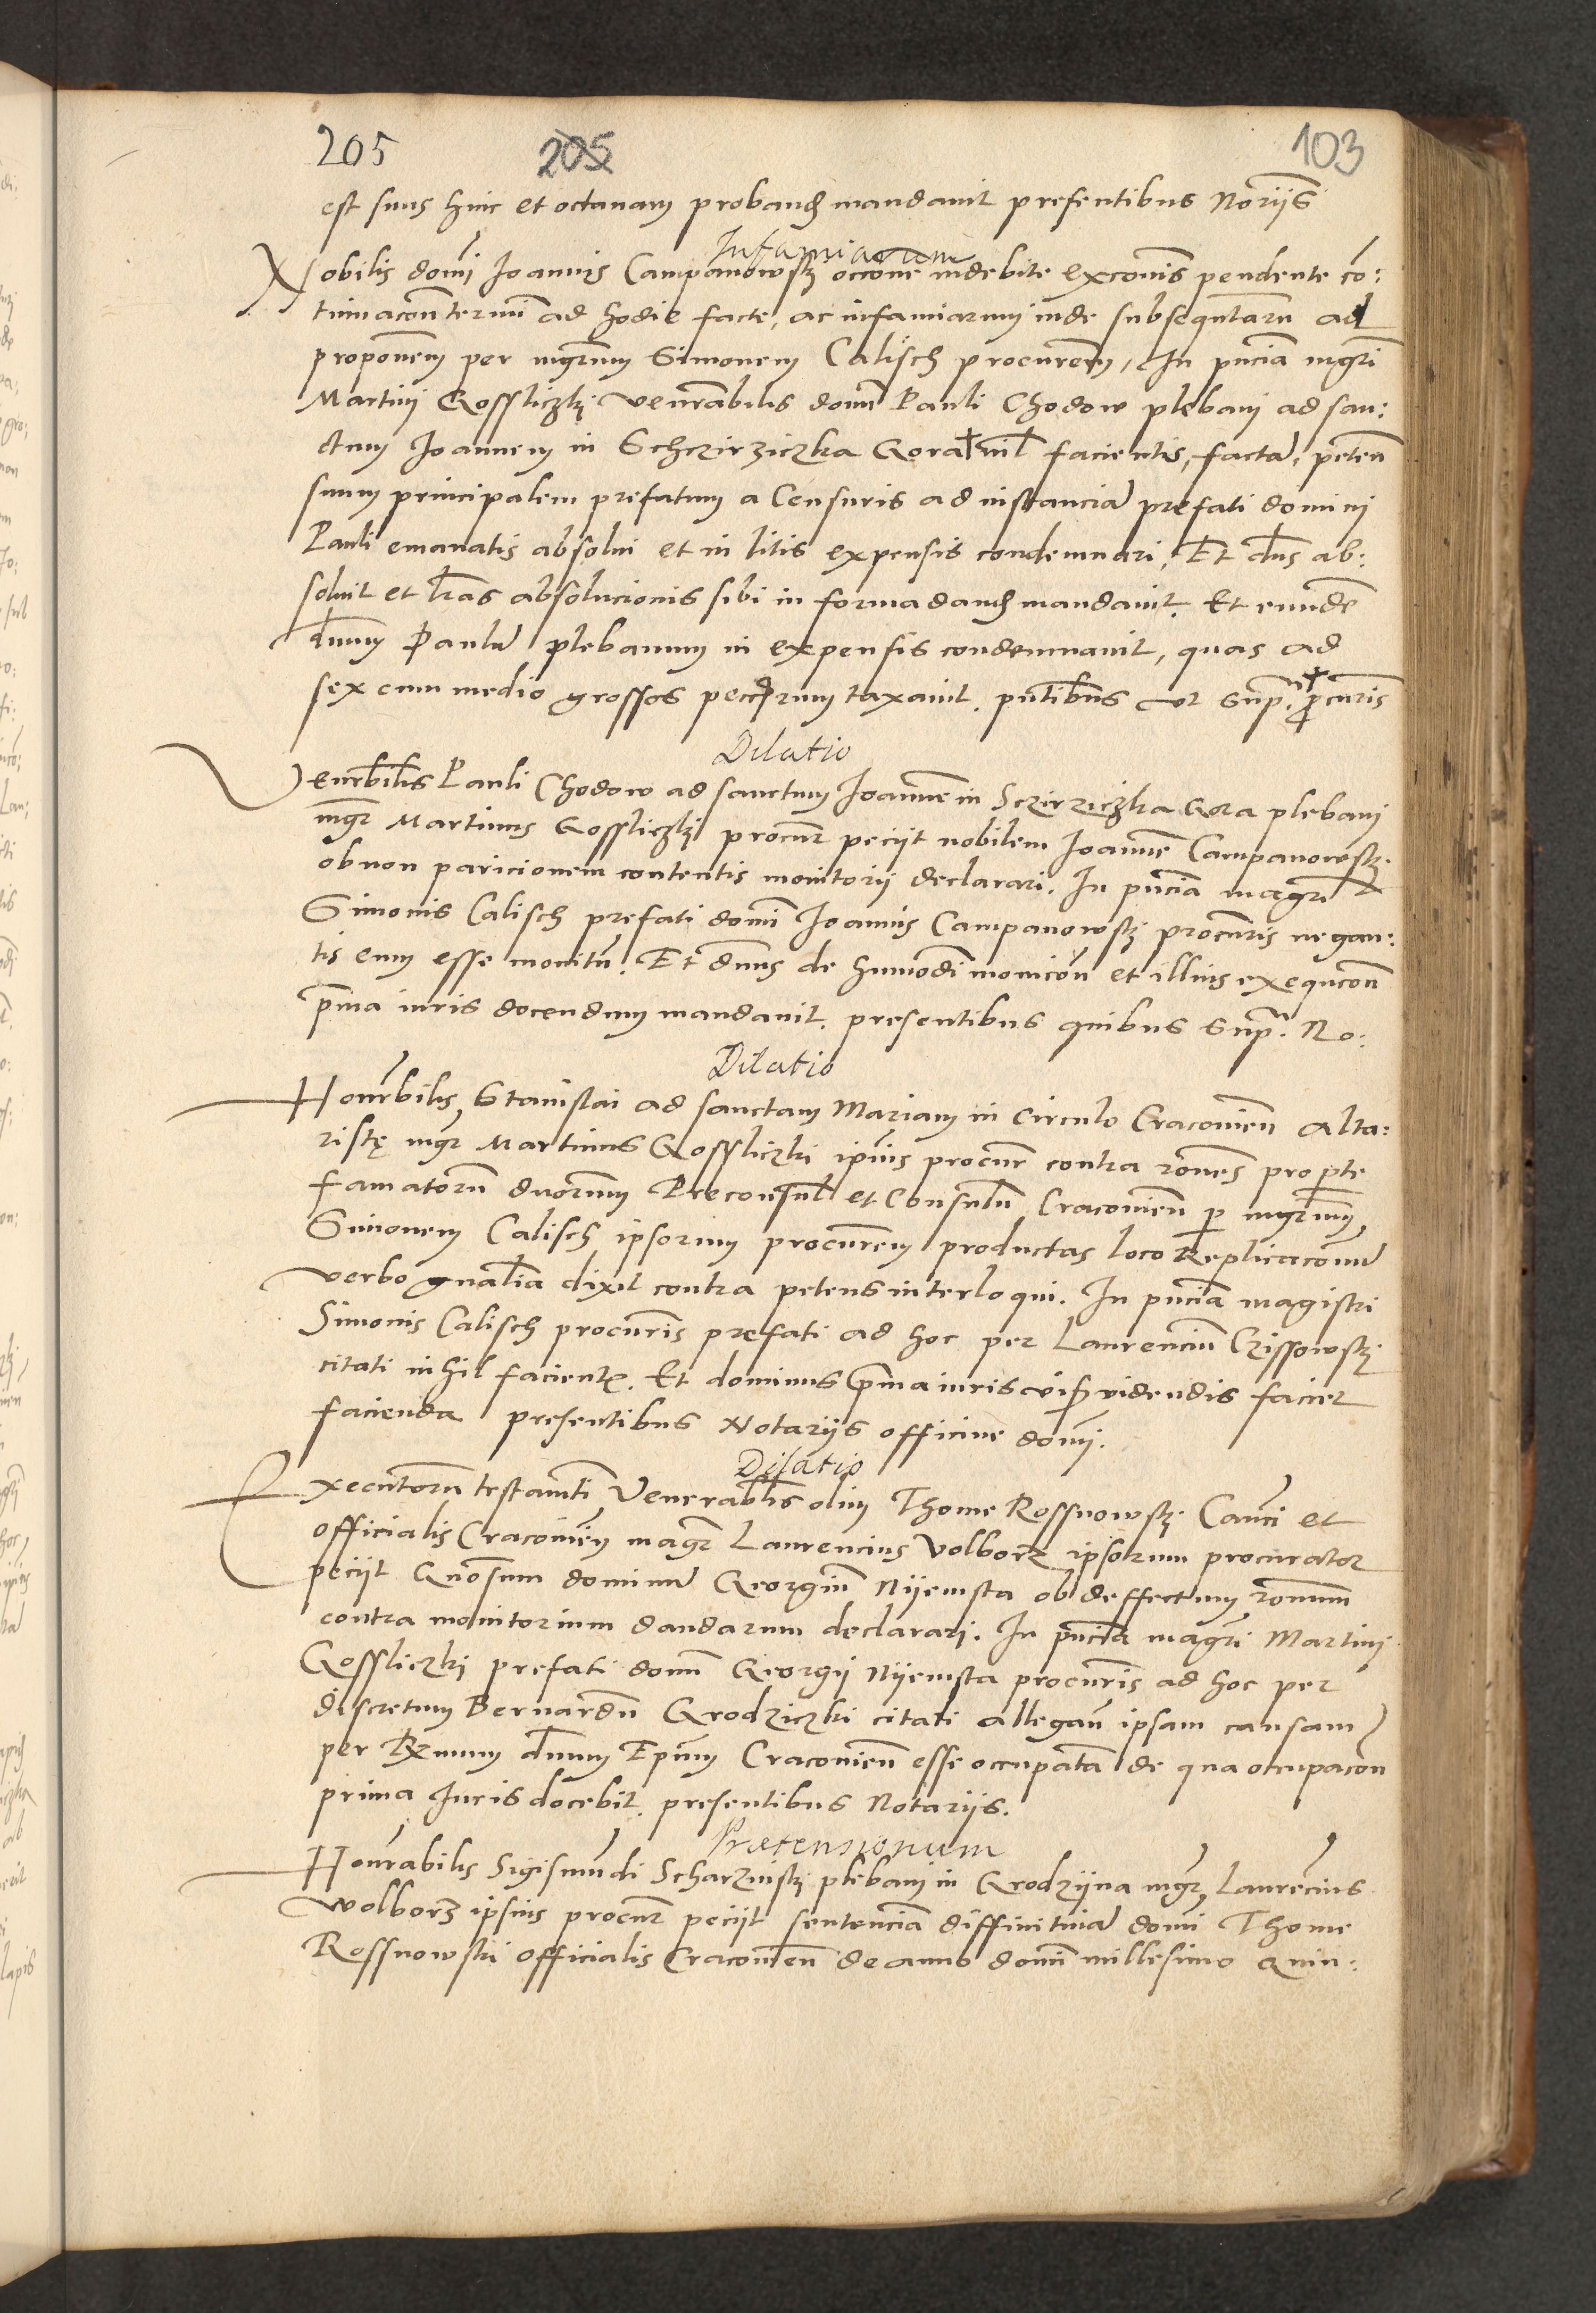 205 205 103
est suus huic et octavam proband mandavit presentibus Norijs
Infamiarum
Nobilis domi Joannis Campanowskj occone indebite exconis pendente co:
tumaaconterminj ad hodie facte, ac infamiarum inde subsequtarum ad
proponem per mgrmm Simonem Calisch procurem, In pncia mgri
Martinj Gossliczkj venrabilis domi Pauli Chodow plebanj ad san:
ctum Joannem in Schczirziczka Gora nil facientis, facta, peten
suum principalem prefatum a Censuris ad instancia prefati dominj
Pauli emanatis absolui et in litis expensis condemnari, Et dns ab:
soluit et lras absolucionis sibi in forma dand mandavit. Et eunde
dnum Paulu plebanum in expensis condemnavit, quas ad
sex cum medio grossos peccorum taxauit. pntibus vt supra procuris
Dilatio
Venrbilis Pauli Chodow ad sanctum Joanne in Sczirziczka Gora plebanj
mgr Martinus Gossliczkj procur peciit nobilem Joanne Campanowskj
ob non paricionem contentis monitorij declarari. In pncia magri
Simonis Calisch prefati domi Joannis Campanowskj procuris negan:
tis eum esse monitu. Et dnus de humodi monicon et illius exequcon
pma iuris docendum mandauit. presentibus quibus supra No:
Dilatio
Honrbilis Stanislai ad sanctam Mariam in Circulo Cracovien alta:
ristę mgr Martinus Gossliczki ipius procur contra rones pro pte
famatorum duorum Preconsul et Consulu Cracovien p mgrmm
Simonem Calisch ipsorum procurem productas loco Replicaconu
verbo gnalia dixit contra petens interloqui. In pncia magistri
Simonis Calisch procuris prefati ad hoc per Laurenciu Czissowskj
citati nihil facient. Et dominus pma iuris visis videndis faciet
facienda presentibus Notarijs officine domj.
Dilatio
Executoru testamti Venerablis olim Thome Rossnowskj Canci et
officialis Cracovien magr Laurencius Volborz ipsorum procurator
peciit Gnosum dominu Georgiu Nijemsta ob deffectum ronum
contra monitorium dandarum declarari. In pncia magri Martinj
Gossliczkj prefati domi Georgij Nijemsta procuris ad hoc per
discretum Bernardu Grodziczki citati allegan ipsam causam
per Rmum dnum Epum Cracovien esse occupata de qua occupacon
prima Juris docebit. presentibus Notarijs.
Praetensionum
Honrabilis Sigismundi Scharzinskj plebanj in Grodzijna mgr Laurencius
Wolborz ipsius procur peciit sentencia diffinitiua domi Thome
Rossnowski officialis Cracovien de anno domi millesimo quin: